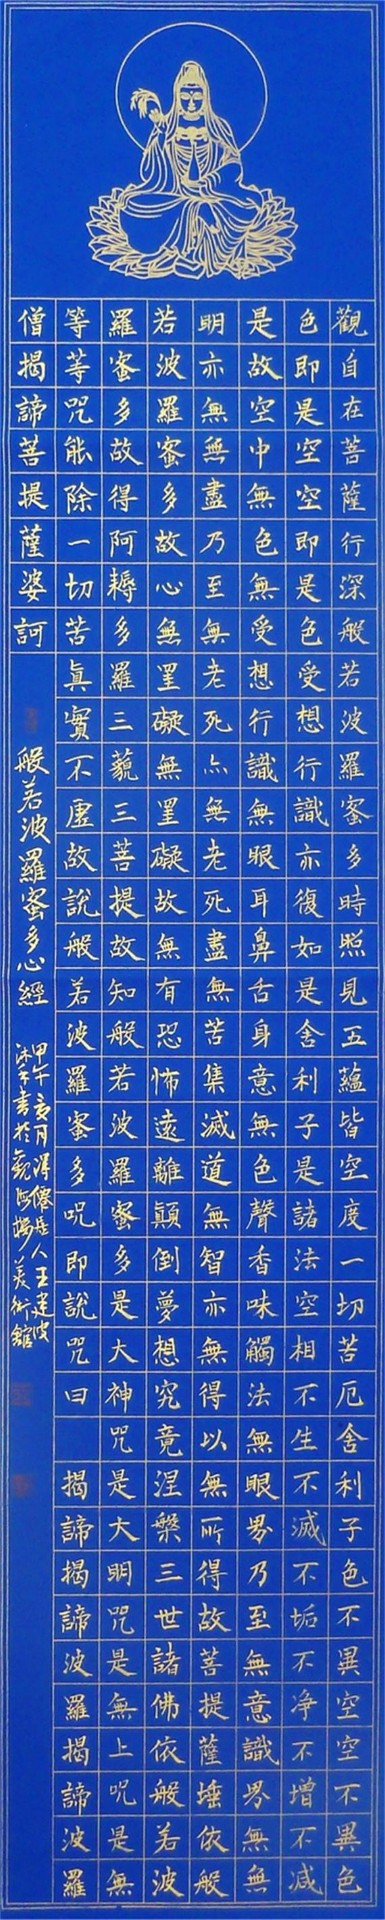 觀自在菩薩行深般若波羅蜜多時照見五蘊皆空度一切苦厄舍利子色不異空空不異色
色即是空空即是色受想行識亦復如是舍利子是諸法空相不生不滅不垢不净不增不減
是故空中無色無受想行識無眼耳鼻舌身意無色聲香味觸法無眼界乃至無意識界無無
明亦無無盡乃至無老死亦無老死盡無苦集滅道無智亦無得以無所得故菩提薩埵依般
若波羅蜜多故心無罣礙無罣礙故無有恐怖遠離顛倒夢想究竟涅槃三世諸佛依般若波
羅蜜多故得阿耨多羅三藐三菩提故知般若波羅蜜多是大神咒是大明咒是無上咒是無
等等咒能除一切苦真實不虛故說般若波羅蜜多咒即說咒曰 揭諦揭諦波羅揭諦波羅
僧揭諦菩提薩婆訶
般若波羅蜜多心經
甲午亥月人王建波
沐手書於觀海樓美術館